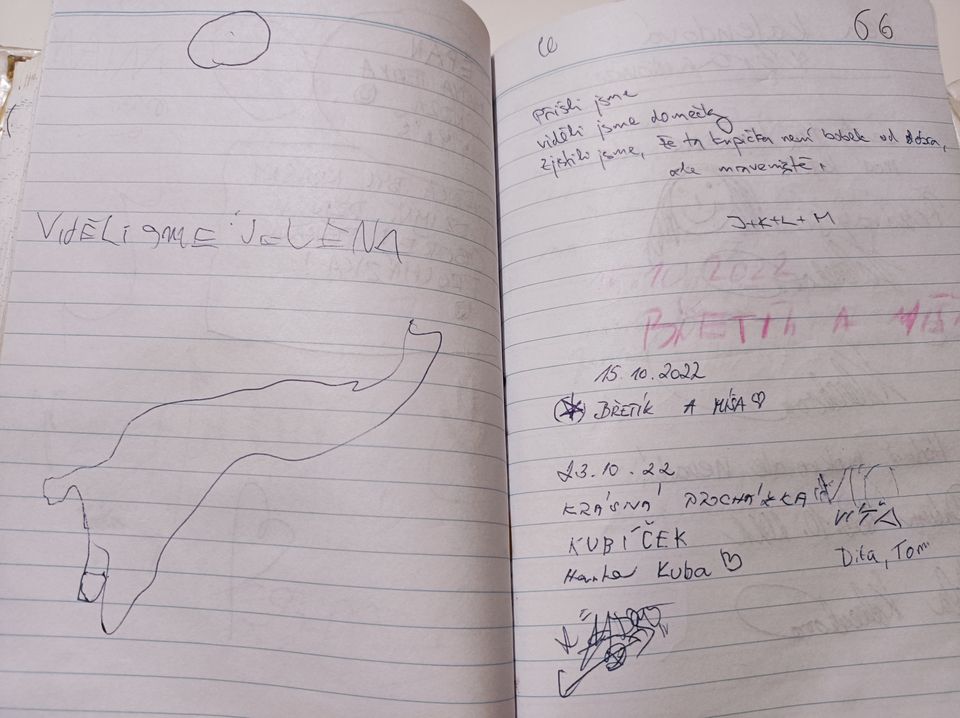 VIDĚLI JSME JELENA
66
Přišli jsme
viděli jsme domečky
Zjistili jsme, že ta kupička není bobek od bobra,
ale mraveniště.
J+K+L+M
10 2022
BŘETÍK A MÍŠA
15.10.2022
BŘETÍK A MÍŠA ♡
23.10.22
KRÁSNÁ PROCHÁZKA
VÍŤA
KUBÍČEK
Kuba ♡
Dita, Tom